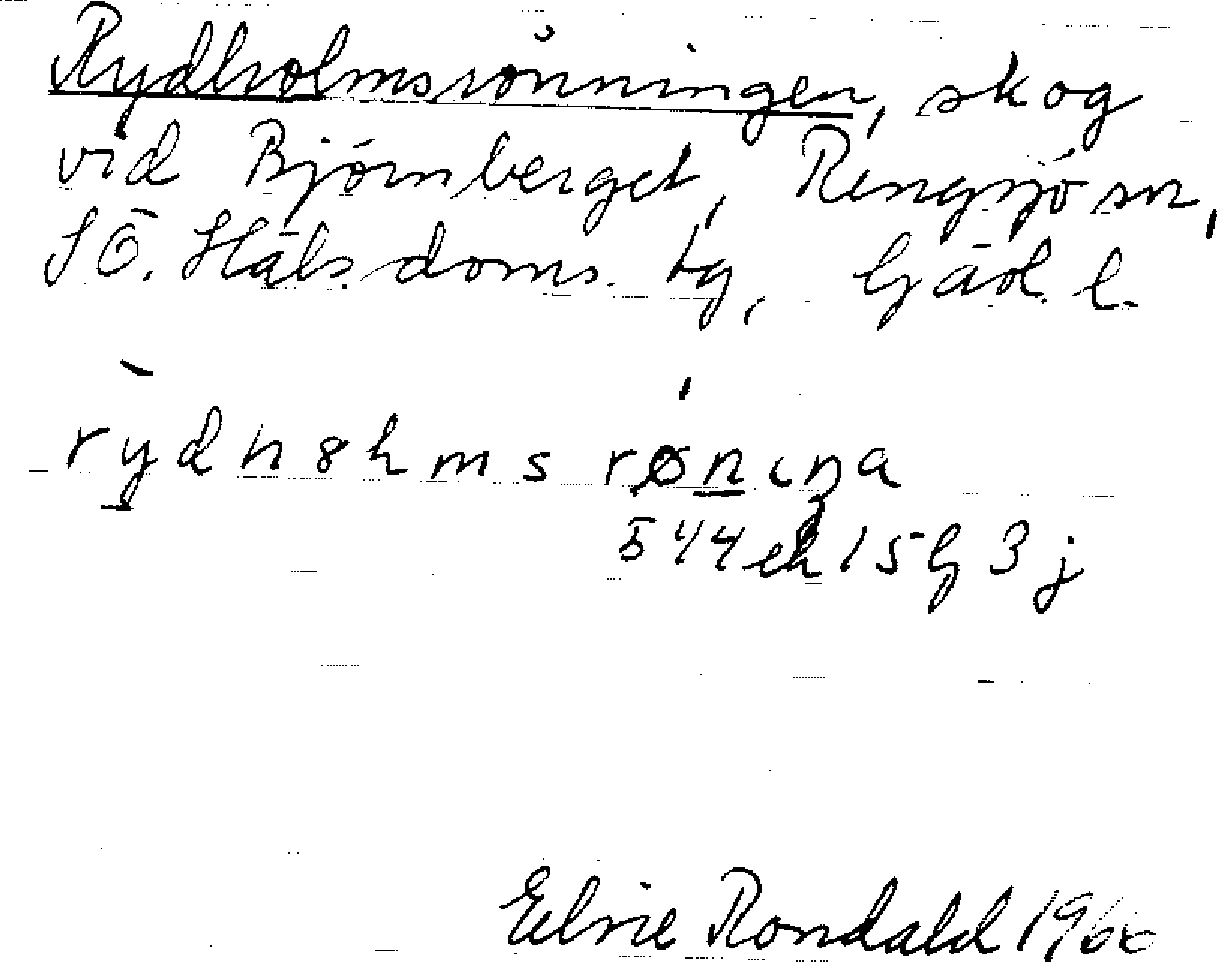 Rydholmsrönningen, skog
vid Björnberget, Rengsjö sn,
SÖ. Häls. doms. tg, Gävl. l.
rydhshms røniŋa
544ek15g3j
Rondald 1966